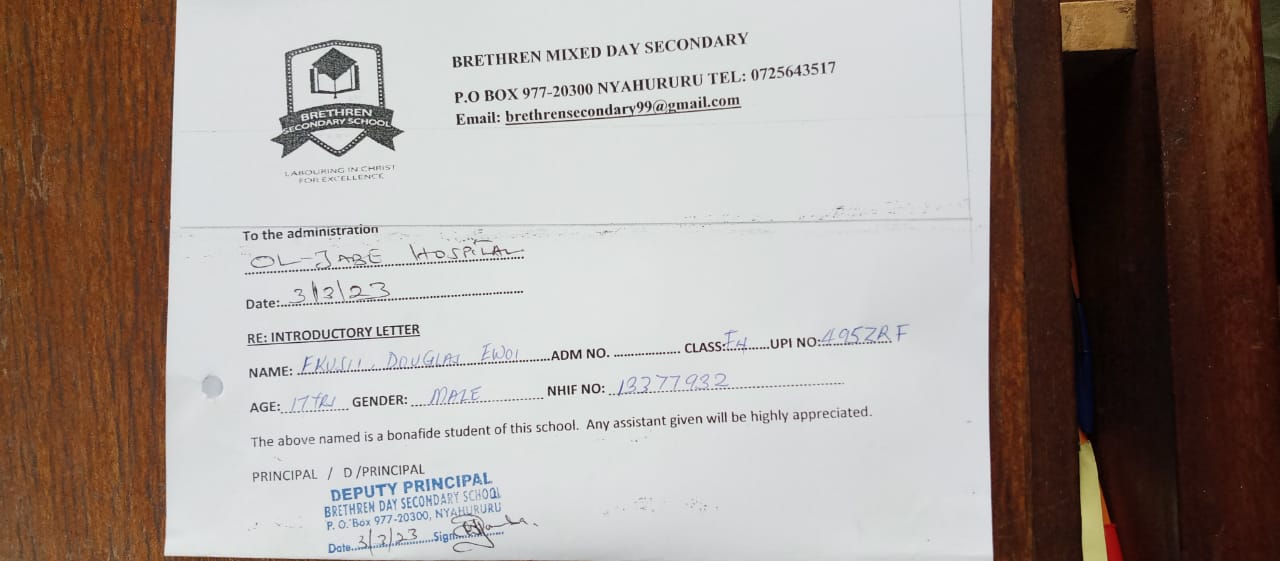 BRETHREN
SECONDARY SCHOOL
LABOURING IN CHRIST
FOR EXCELLENCE
BRETHREN MIXED DAY SECONDARY
P.O BOX 977-20300 NYAHURURU TEL: 0725643517
Email: brethrensecondary99@gmail.com
To the administration
OL-JABE HOSPITAL
Date: 3/3/23
RE: INTRODUCTORY LETTER
NAME: EKUSII, DOUGLAS EWOI ADM NO. CLASS: F4 UPI NO: 495ZRF
AGE: 17YRS GENDER: MALE NHIF NO: 13377932
The above named is a bonafide student of this school. Any assistant given will be highly appreciated.
PRINCIPAL / D /PRINCIPAL
DEPUTY PRINCIPAL
BRETHREN DAY SECONDARY SCHOOL
P. O. Box 977-20300, NYAHURURU
Date 3/3/23 Sign